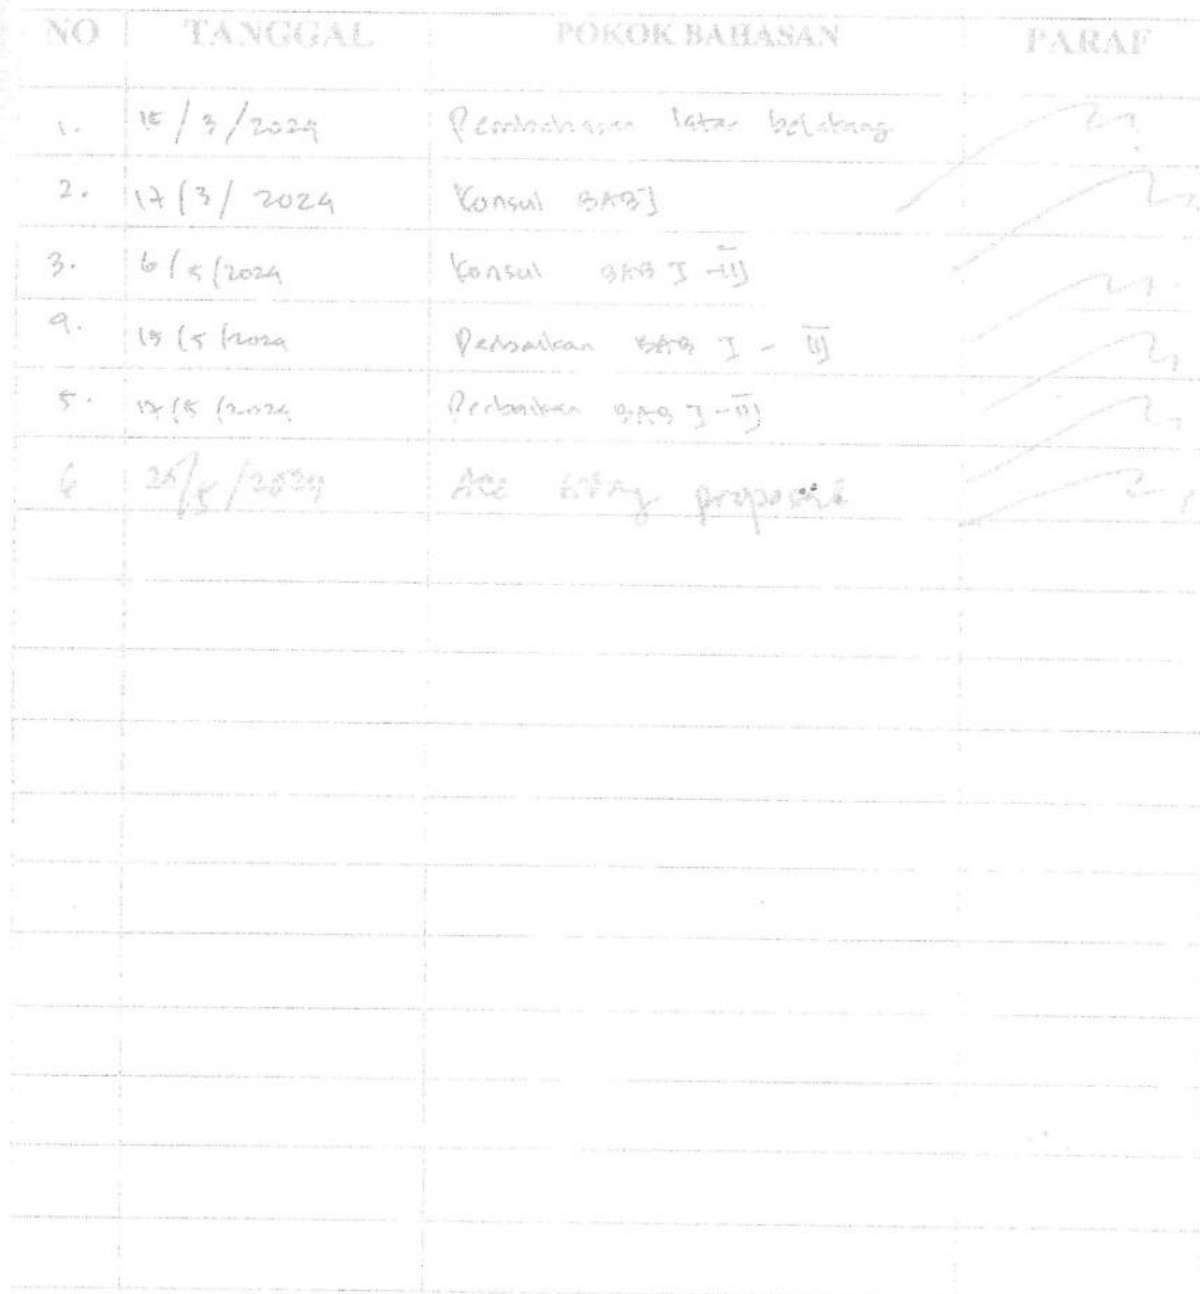 NO TANGGAL POKOK BAHASAN PARAF
1. 15/3/2024 Pembahasan latar belakang
2. 17/3/2024 Konsul BAB I
3. 6/5/2024 Konsul BAB I - III
4. 15/5/2024 Perbaikan BAB I - III
5. 17/5/2024 Perbaikan BAB I - III
6 /5/2024 Acc proposal